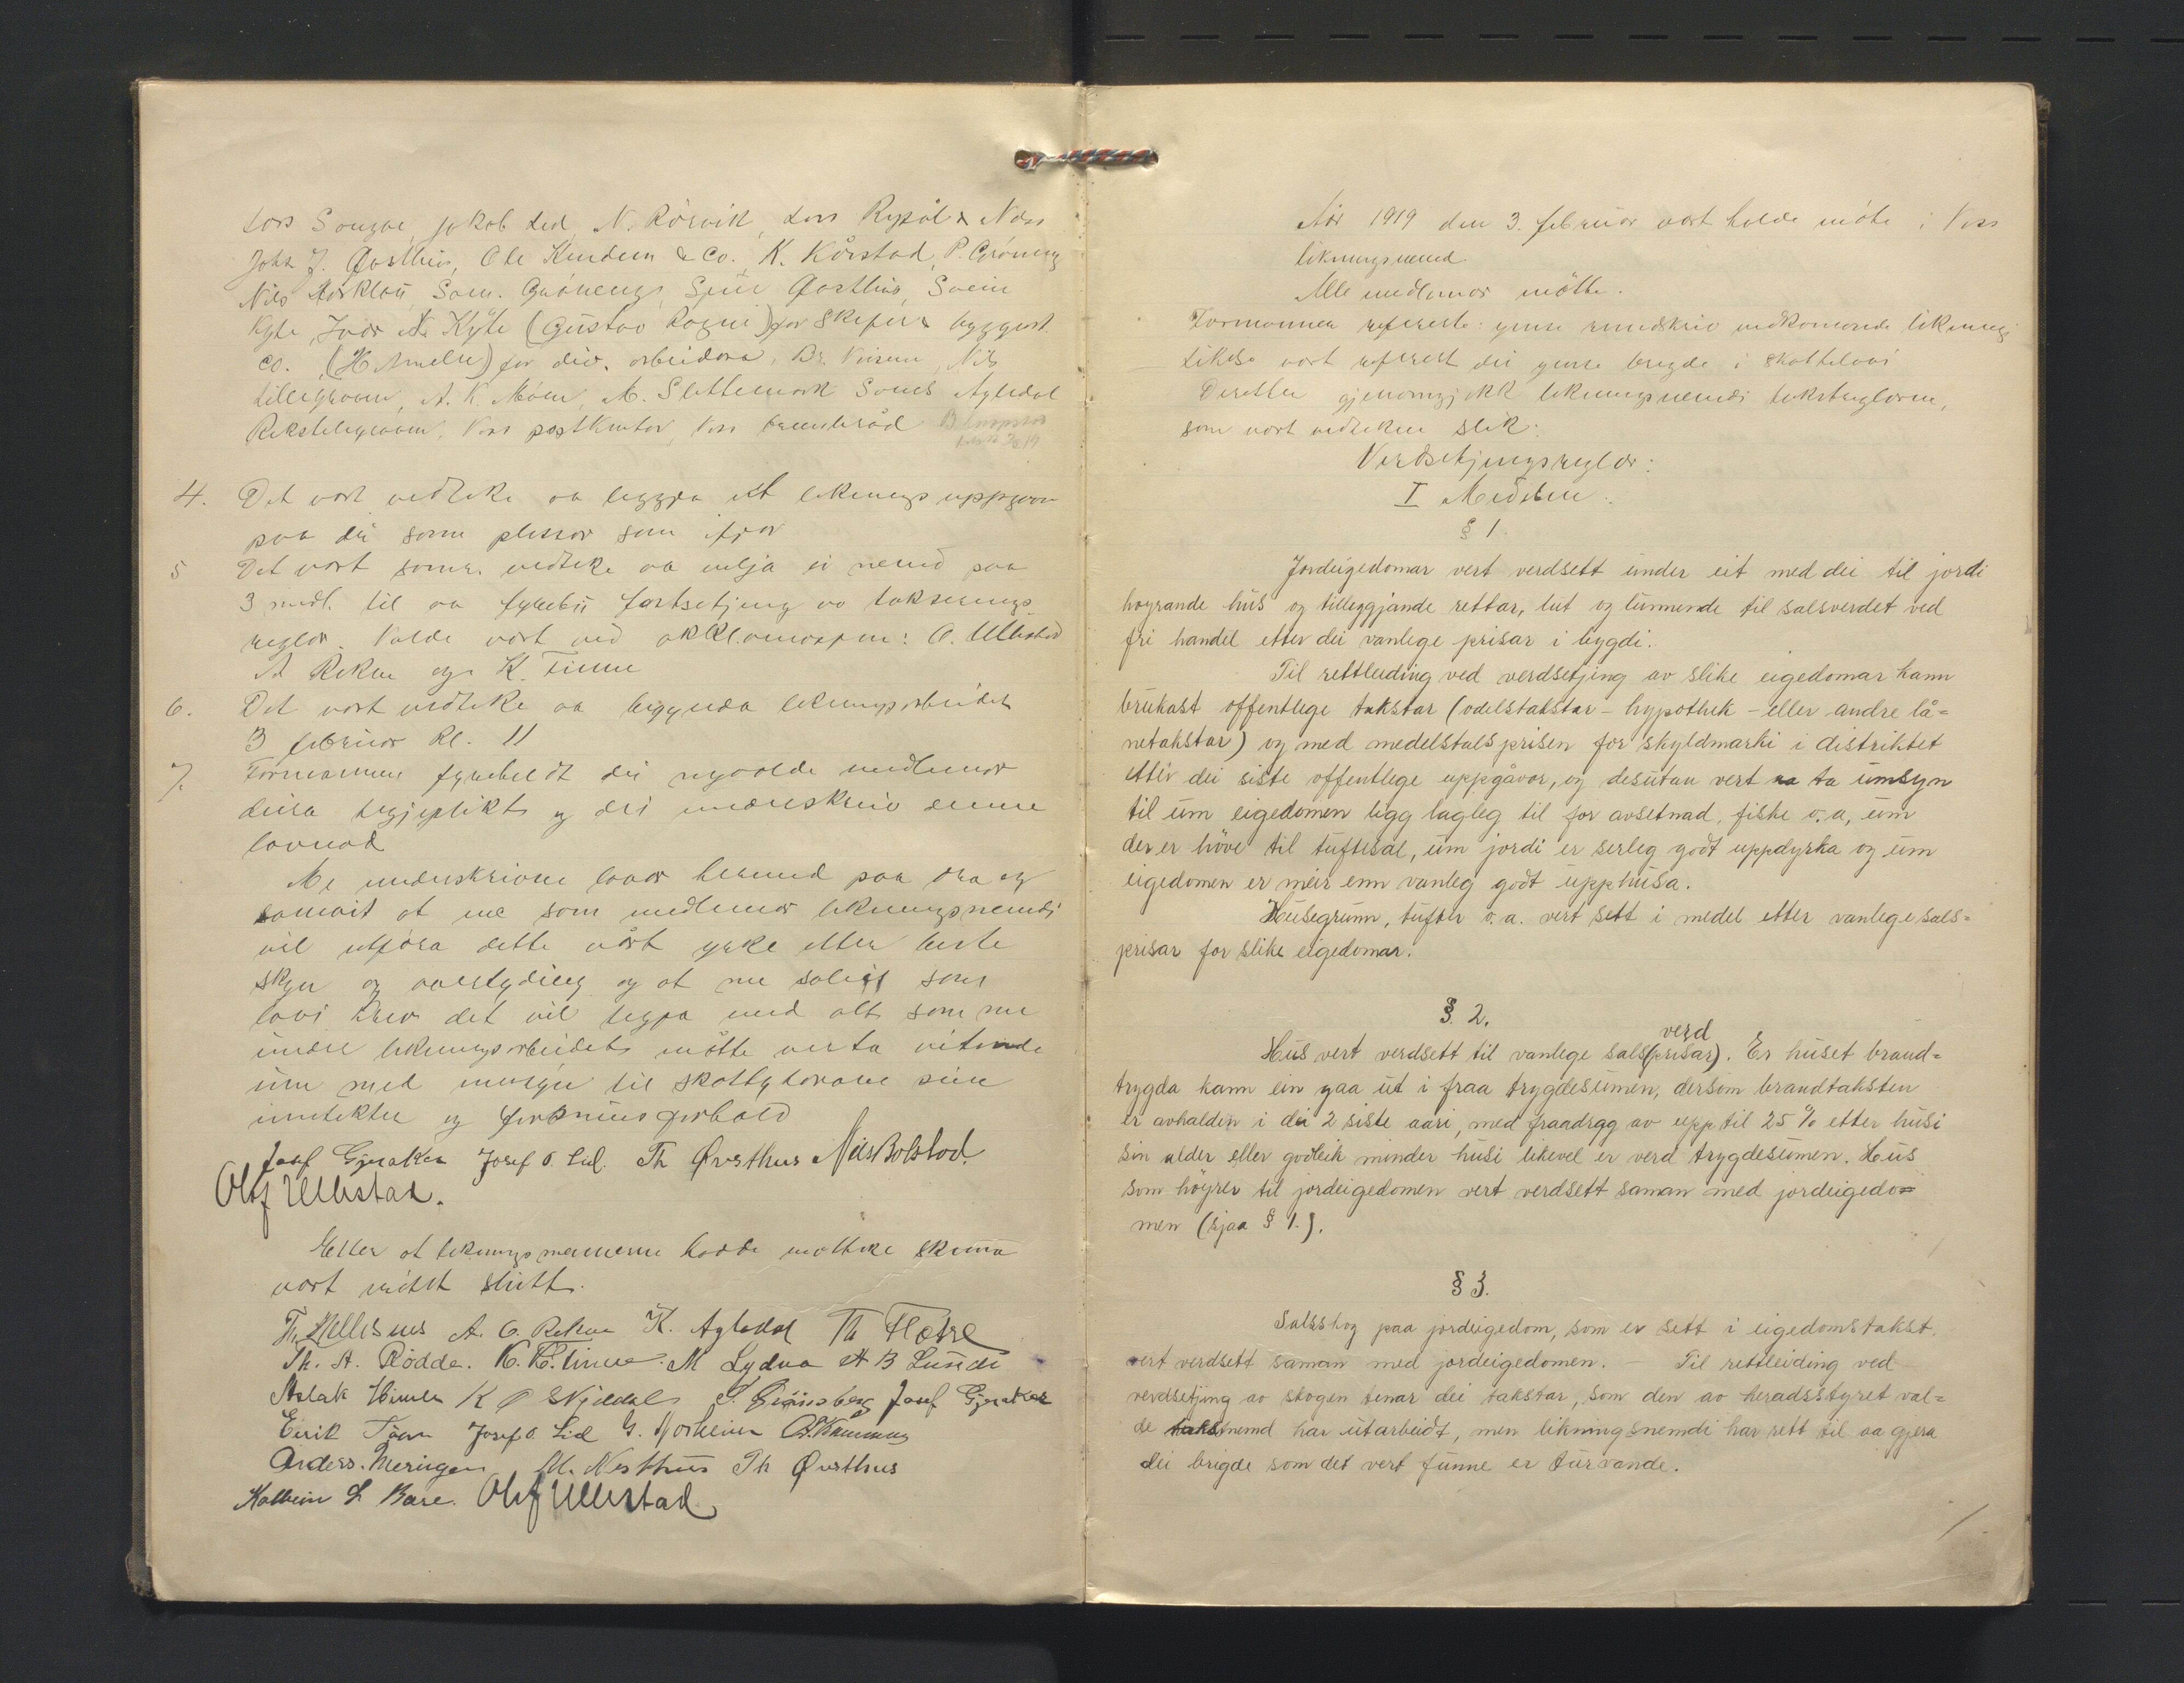 Lars Songve, Jakob Lid, N. Rörvik, Lars Rysål & Næss
John J. Qasthus, Ole Kinden & Co. K. Kårstad, P. Gröneng
Nils Aasklau, Sam. Gröneng, Spår Qasthus, Svein
Kyte, Ivar Kyte (Gustav Rogne) for Skifer & byggart.
Co. (H. Amble) for div. arbeidara, Br. Vinsen, Nils
Lillegraven, A. K. Möen, M. Slettemark Sands Aglidal
Rikstelegraven, Voss postkontor, Voss
4. Det vart vedteke aa leggja ut liknings uppgaav
paa dei same plassar som ifjor
5 Det vart samr. vedteke aa velja ei nemd paa
3 medl. til aa fyrebu fastsetjing av takserings
reglar. Valde vart ved akklamasjon: O. Ullestad
A Rekve og K. Finne
6. Det vart vedteke aa byggynda likningsarbeidet
3 februar kl. 11
7. Formannen fyreheldt dei nyvalde medlemar
deira tegjeplikt og dei underskreiv denne
lovnad
Me underskrivne lovar hermed paa æra og
samvit at me som medlemar likningsnemdi
vil utföra dette vårt yrke etter beste
skyn og og at me soleis som
lovi krev det vil tegja med alt som me
under likningsarbeidet måtte verta vitande
um med umsyn til skattyterane sine
inntekter og formuesforhold
Josef Gjeraker Josef O. Lid Th Qvsthus Nils Bolstad.
Olaf Ullestad.
Etter at likningsmennerne hadde mottke skrima
vart mötet slutt.
Th. Hellesnes A. O. Rekve K. Aglidal Th Fletre
Th. A. Rödde. K. K. Finne M Lydva A B Lunde
Aslak Himle K O Skjeldal S. Grönsberg Josef Gjeraker
Eirik Tveen Josef O. Lid G. Norheim
Anders. Meringen M. Nesthus Th Qvsthus
L Bære. Olaf Ullestad
Aar 1919 den 3. februar vart halde möte i Voss
likningsnemd.
Alle medlemar mötte.
Formannen refererte ymse rundskriv vedkomande likningi
Likeso vart referert dei ymse brigde i skattelovi
Deretter gjenomgjekk likningsnemdi takstreglarne,
som vart vedtekne slik:
Verdsetjingsreglar:
I Midelen.
§ 1.
Jordeigedomar vert verdsett under eit med dei til jordi
hoyrande hus og tilleggjande rettar, lut og lunnende til salsverdet ved
fri handel etter dei vanlege prisar i bygdi.
Til rettleiding ved verdsetjing av slike eigedomar kann
brukast offentlege takstar (odelstakstar - hypothek - eller andre lå=
netakstar) og med medelstals prisen for skyldmarki i distriktet
etter dei siste offentlege uppgåvor, og desutan vert aa ta umsyn
til um eigedomen ligg lagleg til for avsetnad, fiske o. a, um
der er höve til tuftesal, um jordi er serleg godt uppdyrka og um
eigedomen er meir enn vanleg godt upphusa.
Husegrunn, tufter o. a. vert sett i medel etter vanlege sals=
prisar for slike eigedomar.
§. 2.
verd
Hus vert verdsett til vanlege sals(prisar). Er huset brand=
trygda kann ein gaa ut i fraa trygdesumen, dersom brandtaksten
er avhalden i dei 2 siste aari, med fraadrag av upp til 25 % etter husi
sin alder eller godleik minder husi likevel er verd trygdesumen. Hus
som höyrer til jordeigedomen vert verdsett saman med jordeigedo=
men (sjaa § 1.).
§ 3.
Salsskog paa jordeigedom, som er sett i eigedomstakst,
vert verdsett saman med jordeigedomen. - Til rettleiding ved
verdsetjing av skogen tenar dei takstar, som den av heradsstyret val=
de takstnemd har utarbeidt, men likningsnemdi har rett til aa gjera
dei brigde som det vert funne er turvande.